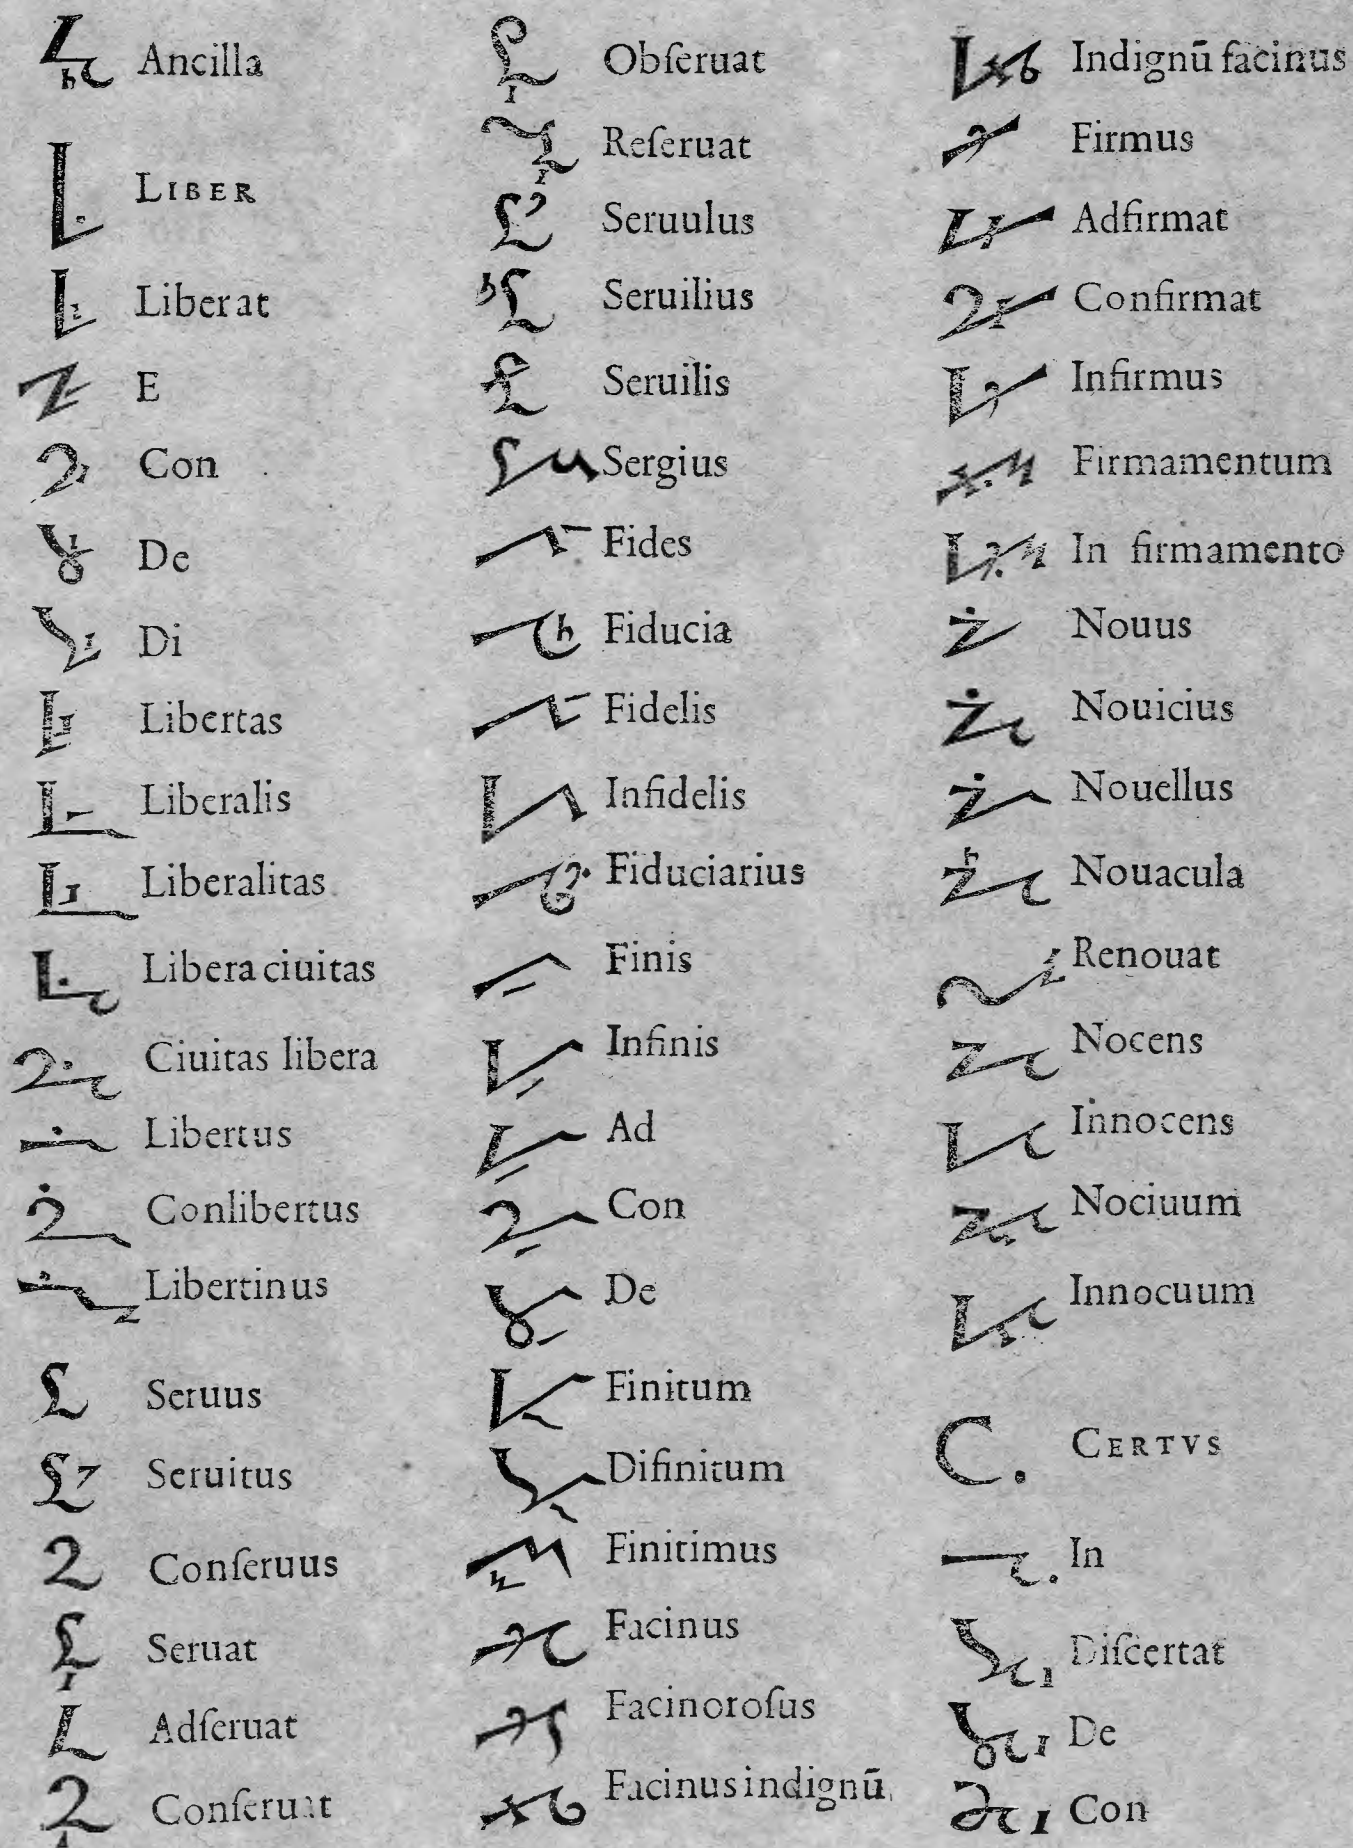 Ancilla
LIBER
Liberat
E
Con
De
Di
Libertas
Liberalis
Liberalitas
Libera ciuitas
Ciuitas libera
Libertus
Conlibertus
Libertinus
Seruus
Seruitus
Conſeruus
Seruat
Adſeruat
Conſeruat
Obſeruat
Reſeruat
Seruulus
Seruilius
Seruilis
Sergius
Fides
Fiducia
Fidelis
Infidelis
Fiduciarius
Finis
Infinis
Ad
Con
De
Finitum
Difinitum
Finitimus
Facinus
Facinoroſus
Facinus indignū
Indignū facinus
Firmus
Adfirmat
Confirmat
Infirmus
Firmamentum
In firmamento
Nouus
Nouicius
Nouellus
Nouacula
Renouat
Nocens
Innocens
Nociuum
Innocuum
CERTVS
In
Diſcertat
De
Con